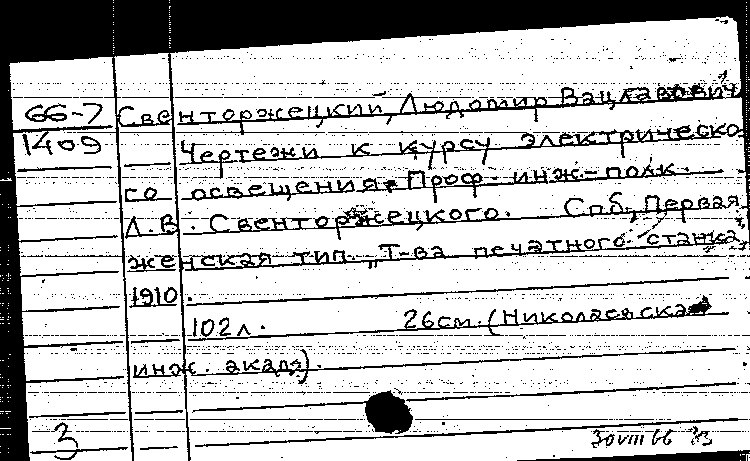 66-7 Свенторжецкий, Людомир Вацлавович
1409 Чертежи к курсу электрическо-
го освещения. Проф. инж-полк.
Л.В. Свенторжецкого. Спб., Первая
женская тип. "Т-ва печатного станка",
1910.
102л. 26см. (Николаевская
инж. акад.).
3 30 VIII 66